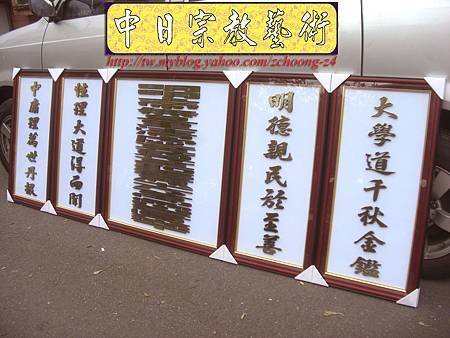 中日宗教藝術
http://tw.myblog.yahoo.com/zchoong-z4
大學道千秋金鑑
明德親民於至善
性理大道淂而聞
中庸理萬世丹報